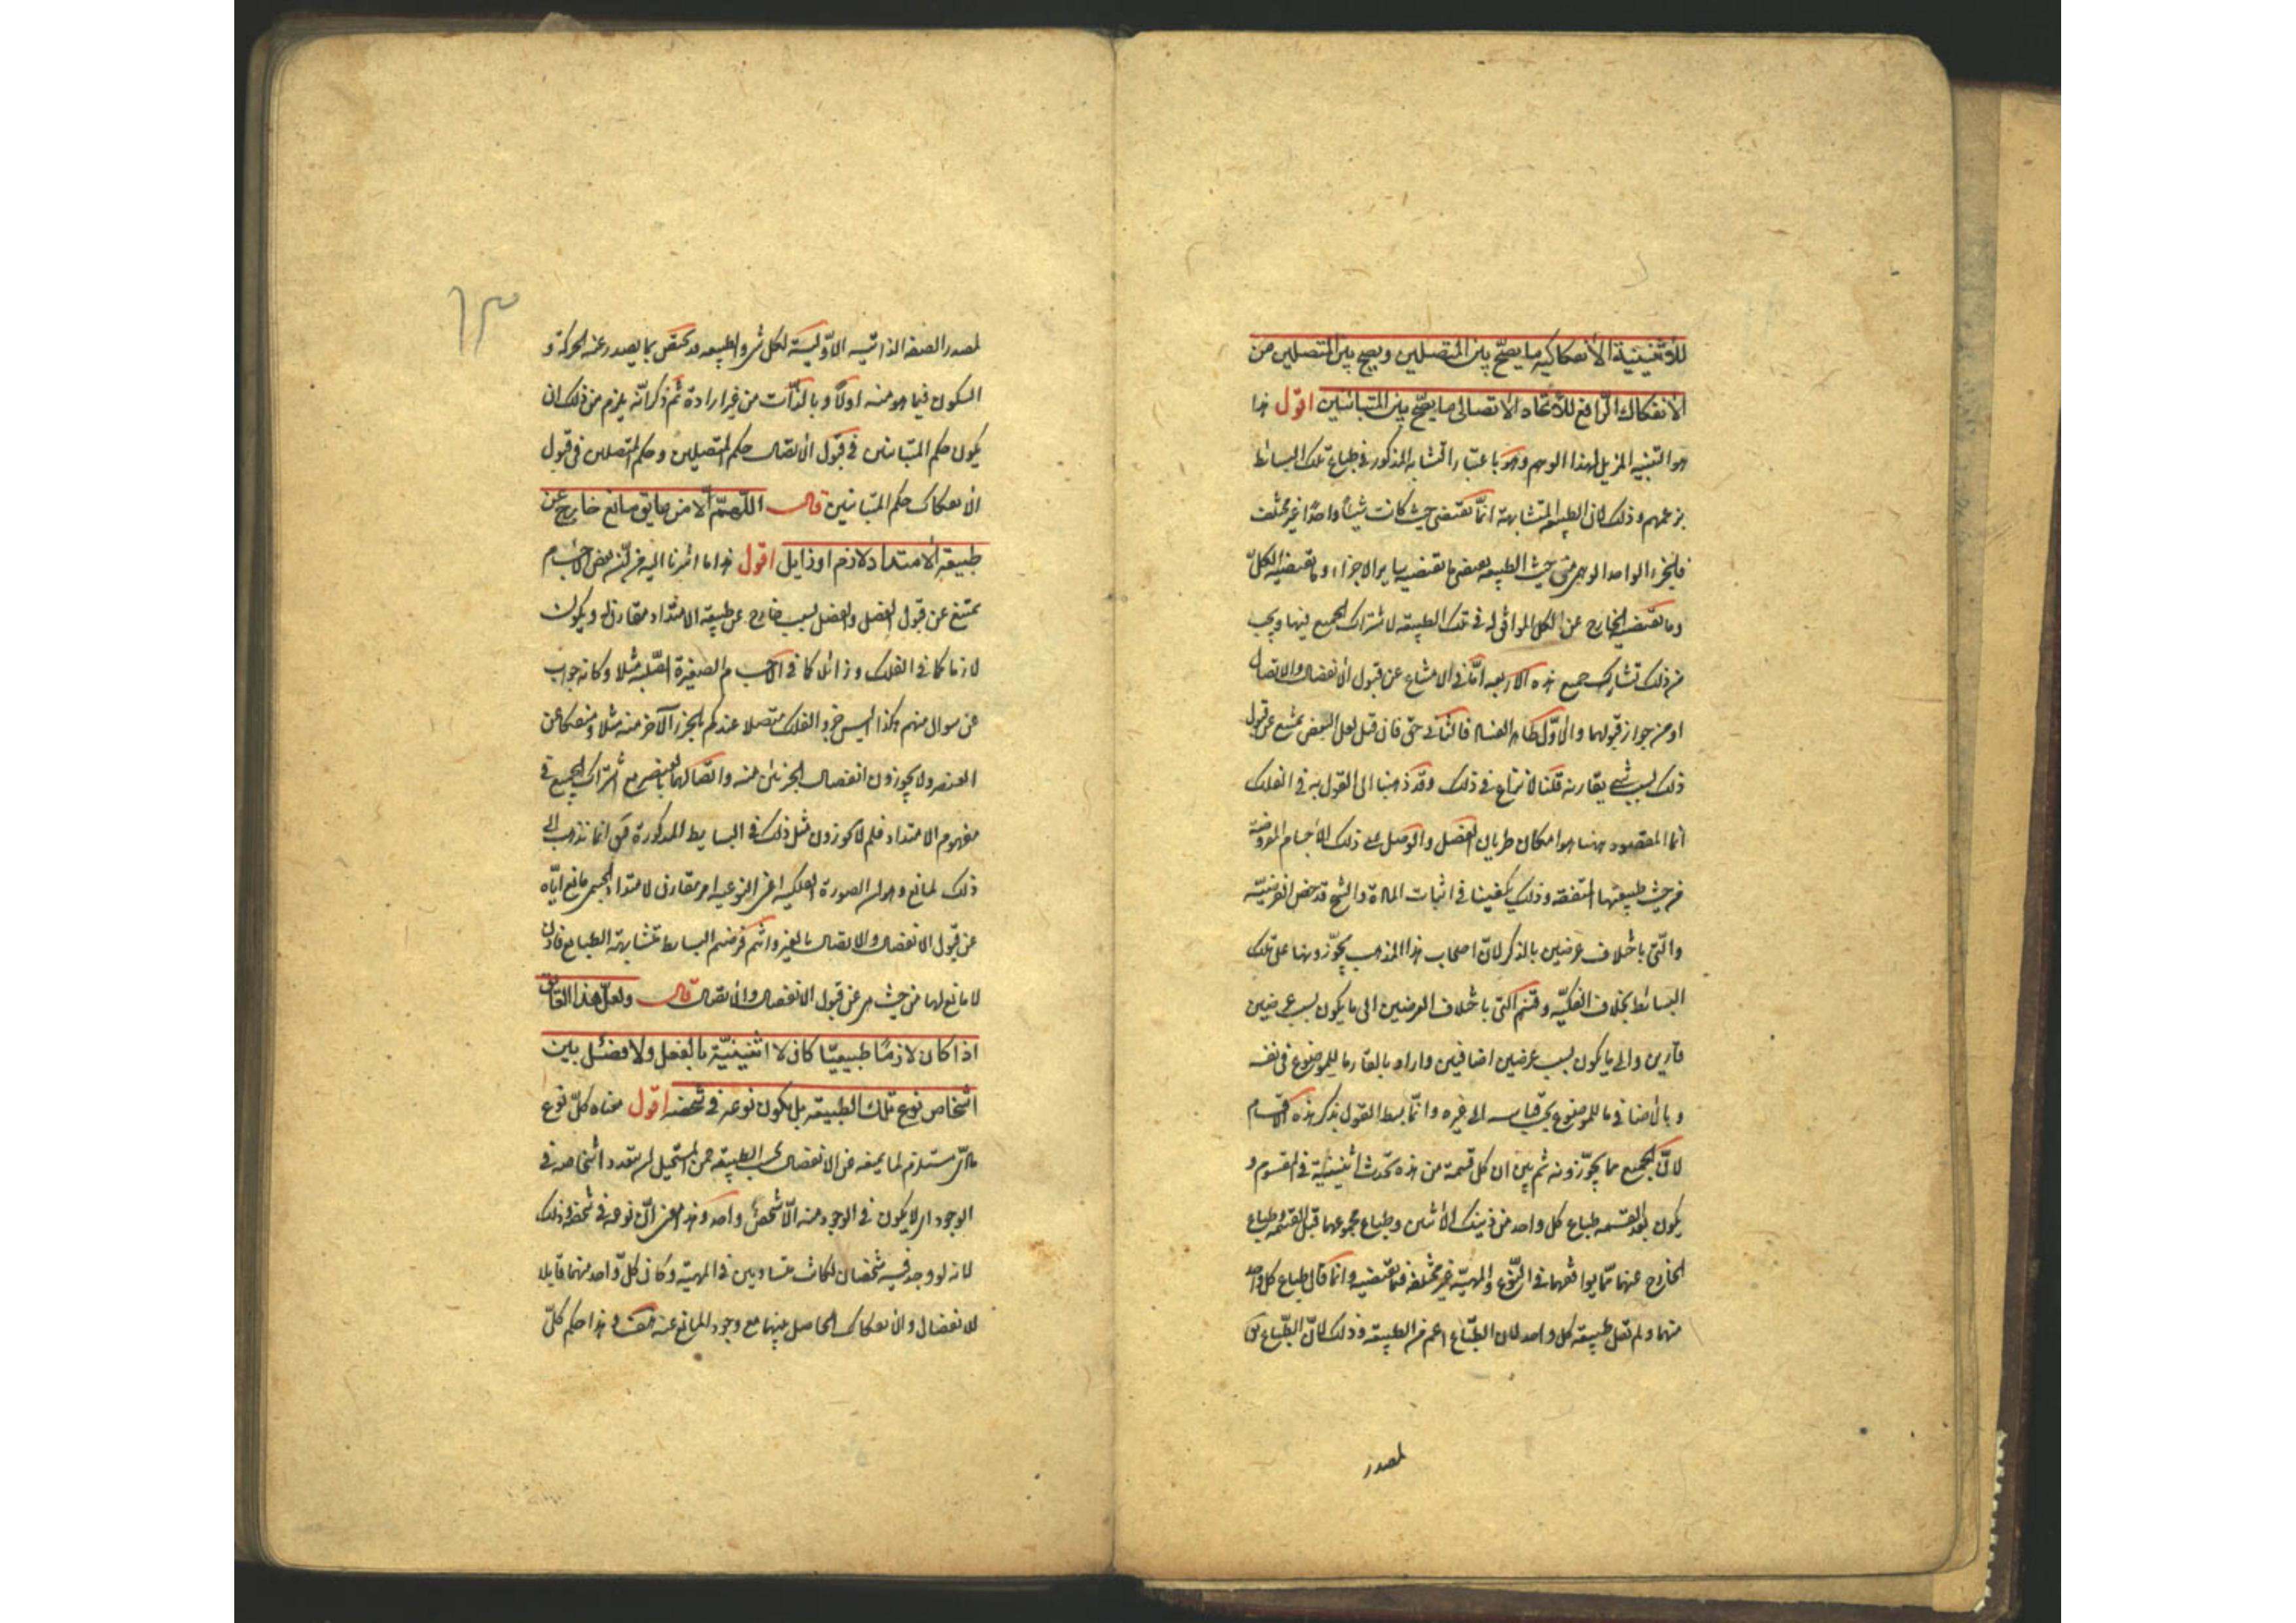 للاثنينية الانفكاكية ما يصح بين المتصلين ويصح بين المتصلين من
الانفكاك الرافع للاتحاد الاتصالى ما يصح بين المتباينين اقول هذا
هو التنبيه المزيل لهذا الوهم وهو باعتبار التشابه المذكور فى طباع تلك البسائط
بزعمهم وذلك لان الطبيعة المتشابهة انما تقتضى حيث كانت شيئا واحدا غير مختلف
فالجزء الواحد الوهمى من حيث الطبيعة يقتضى ما تقتضيه ساير الاجزاء وما يقتضيه الكل
وما يقتضيه الخارج عن الكل الموافق له فى تلك الطبيعة لاشتراك الجميع فيها ويجب
من ذلك تشارك جميع هذه الاربعة اما فى الامتناع عن قبول الانفصال والاتصال
او من جواز قبولهما والاول ظاهر الفساد فالثانى حق فان قيل لعل البعض يمتنع عن قبول
ذلك بسبب شى يقارنه قلنا لا نزاع فى ذلك وقد ذهبنا الى القول به فى الفلك
انما المقصود ههنا هو امكان طريان الفصل والوصل على ذلك الاجسام المفروضة
من حيث طبيعتها المتفقة وذلك يكفينا فى اثبات المادة والشيخ قد خص الفرضية
والتى باختلاف عرضين بالذكر لان اصحاب هذا المذهب يجوزونها على تلك
البسائط بخلاف الفكية وقسم التى باختلاف العرضين الى ما يكون بسبب عرضين
قارين والى ما يكون بسبب عرضين اضافيين واراد بالقار ما للموضوع فى نفسه
وبالاضافى ما للموضوع بقياسه الى غيره وانما بسط القول بذكر هذه الاقسام
لان الجميع مما يجوزونه ثم بين ان كل قسمة من هذه تحدث اثنينية فى المقسوم و
يكون بعد القسمة طباع كل واحد من ذينك الاثنين وطباع مجموعهما قبل القسمة وطباع
الخارج عنهما مما يوافقهما فى النوع والمهية غير مختلفة فيما تقتضيه وانما قال طباع كل واحد
منهما ولم يقل طبيعة كل واحد لان الطباع اعم من الطبيعة وذلك لان الطباع يق
لمصدر
١٣
لمصدر الصفة الذاتية الاولية لكل شى والطبيعة قد تختص بما يصدر عنه الحركة و
السكون فيما هو منه اولا وبالذات من غير ارادة ثم ذكر انه يلزم من ذلك ان
يكون حكم المتباينين فى قبول الاتصال حكم المتصلين وحكم المتصلين فى قبول
الانفكاك حكم المتباينين قال اللهم الا من عايق مانع خارج عن
طبيعة الامتداد لازم او زايل اقول هذا ما اشرنا اليه من ان بعض الاجسام
يمتنع عن قبول الفصل والوصل بسبب خارج عن طبيعة الامتداد مقارن له ويكون
لازما كما فى الفلك وزائلا كما فى الاجسام الصغيرة الصلبة مثلا وكانه جواب
عن سوال منهم هكذا اليس جزء الفلك متصلا عندكم بالجزء الآخر منه مثلا ومنفكا عن
العنصر ولا يجوزون انفصال الجزئين منه واتصالهما بالعنصر مع اشتراك الجميع فى
مفهوم الامتداد فلم لا تجوزون مثل ذلك فى البسايط المذكورة فيق انما نذهب الى
ذلك لمانع وهو ان الصورة الفلكية اعنى النوعية امر مقارن لامتداد الجسم مانع اياه
عن قبول الانفصال والاتصال بالغير وانتم فرضتم البسايط متشابهة الطبايع فاذن
لا مانع لها من حيث هى عن قبول الانفصال والاتصال قال ولعل هذا العائق
اذا كان لازما طبيعيا كان لا اثنينية بالفعل ولا فصل بين
اشخاص نوع تلك الطبيعة بل يكون نوعه فى شخصه اقول معناه كل نوع
مادى مستلزم لما يمنعه عن الانفصال بحسب الطبيعة فمن المستحيل ان يتعدد اشخاصه فى
الوجود اى لا يكون فى الوجود منه الا شخص واحد وهذا معنى ان نوعه فى شخصه وذلك
لانه لو وجد فيه شخصان لكانا متساويين فى المهية وكان كل واحد منهما قابلا
للانفصال والانفكاك الحاصل بينهما مع وجود المانع عنه هف وهذا حكم كل